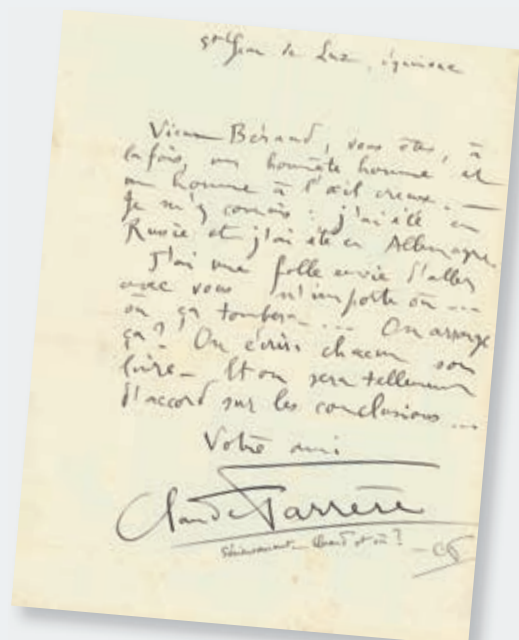 St Jean de Luz, équinoxe
Vieux Béraud, vous êtes, à
la fois, un honnête homme et
un homme à l'œil creux. —
Je m'y connais : j'ai été en
Russie et j'ai été en Allemagne.
J'ai une folle envie d'aller
avec vous n'importe où ...
où ça tombera ... On arrange
ça ? On écrira chacun son
livre — Et on sera tellement
d'accord sur les conclusions ...
Votre ami
Claude Farrère
Sérieusement — Quand et où ?
— CF